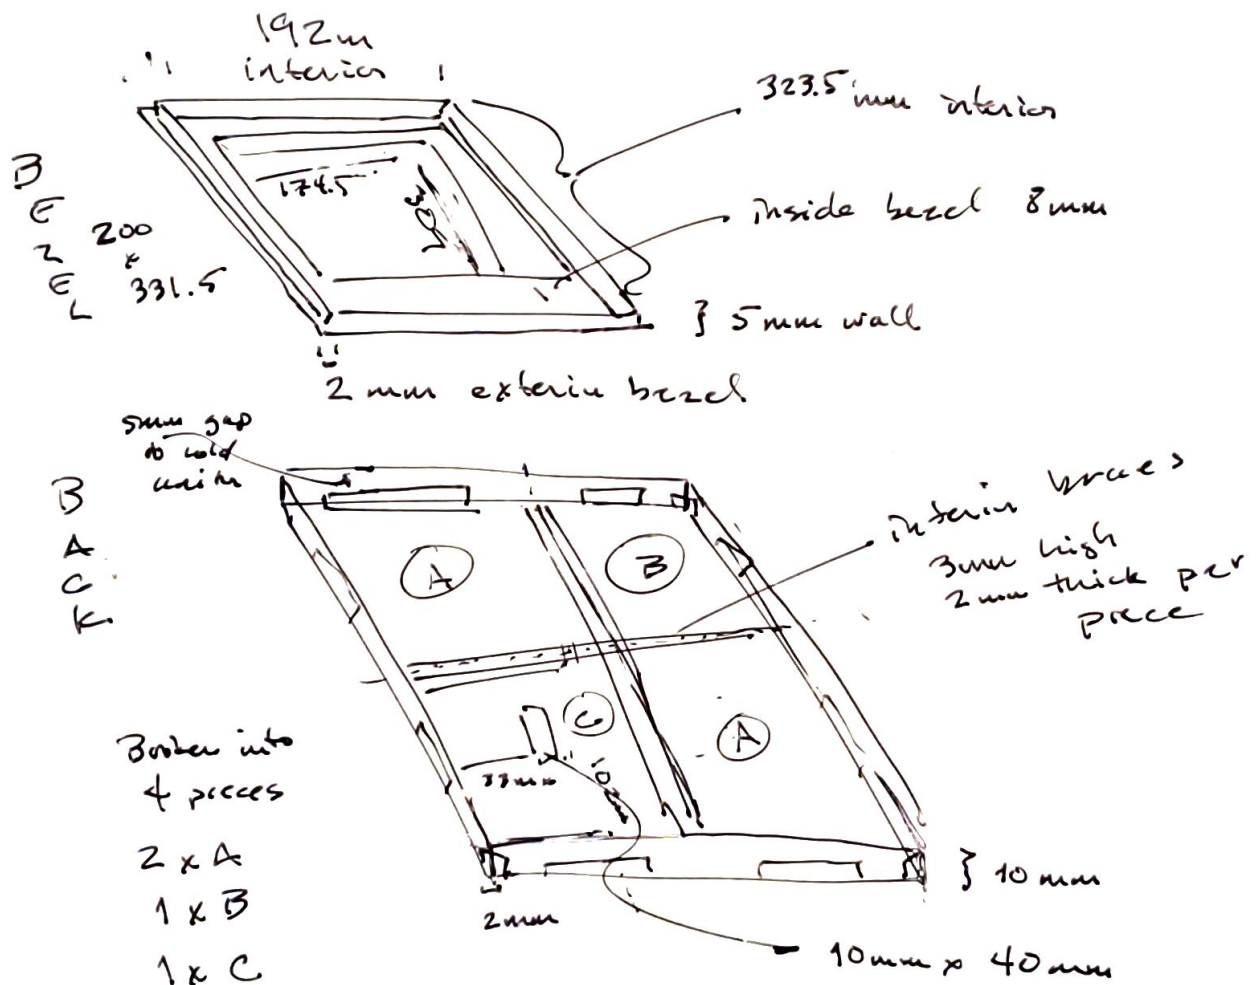 192m
interior
323.5 mm interior
BEZEL
200
x
331.5
174.5
307
inside bezel 8mm
} 5mm wall
2 mm exterior bezel
5mm gap
to hold
unit
BACK
A
B
interior braces
3mm high
2mm thick per
piece
C
A
33mm
Broken into
4 pieces
2 x A
1 x B
1 x C
2mm
} 10mm
10mm x 40mm